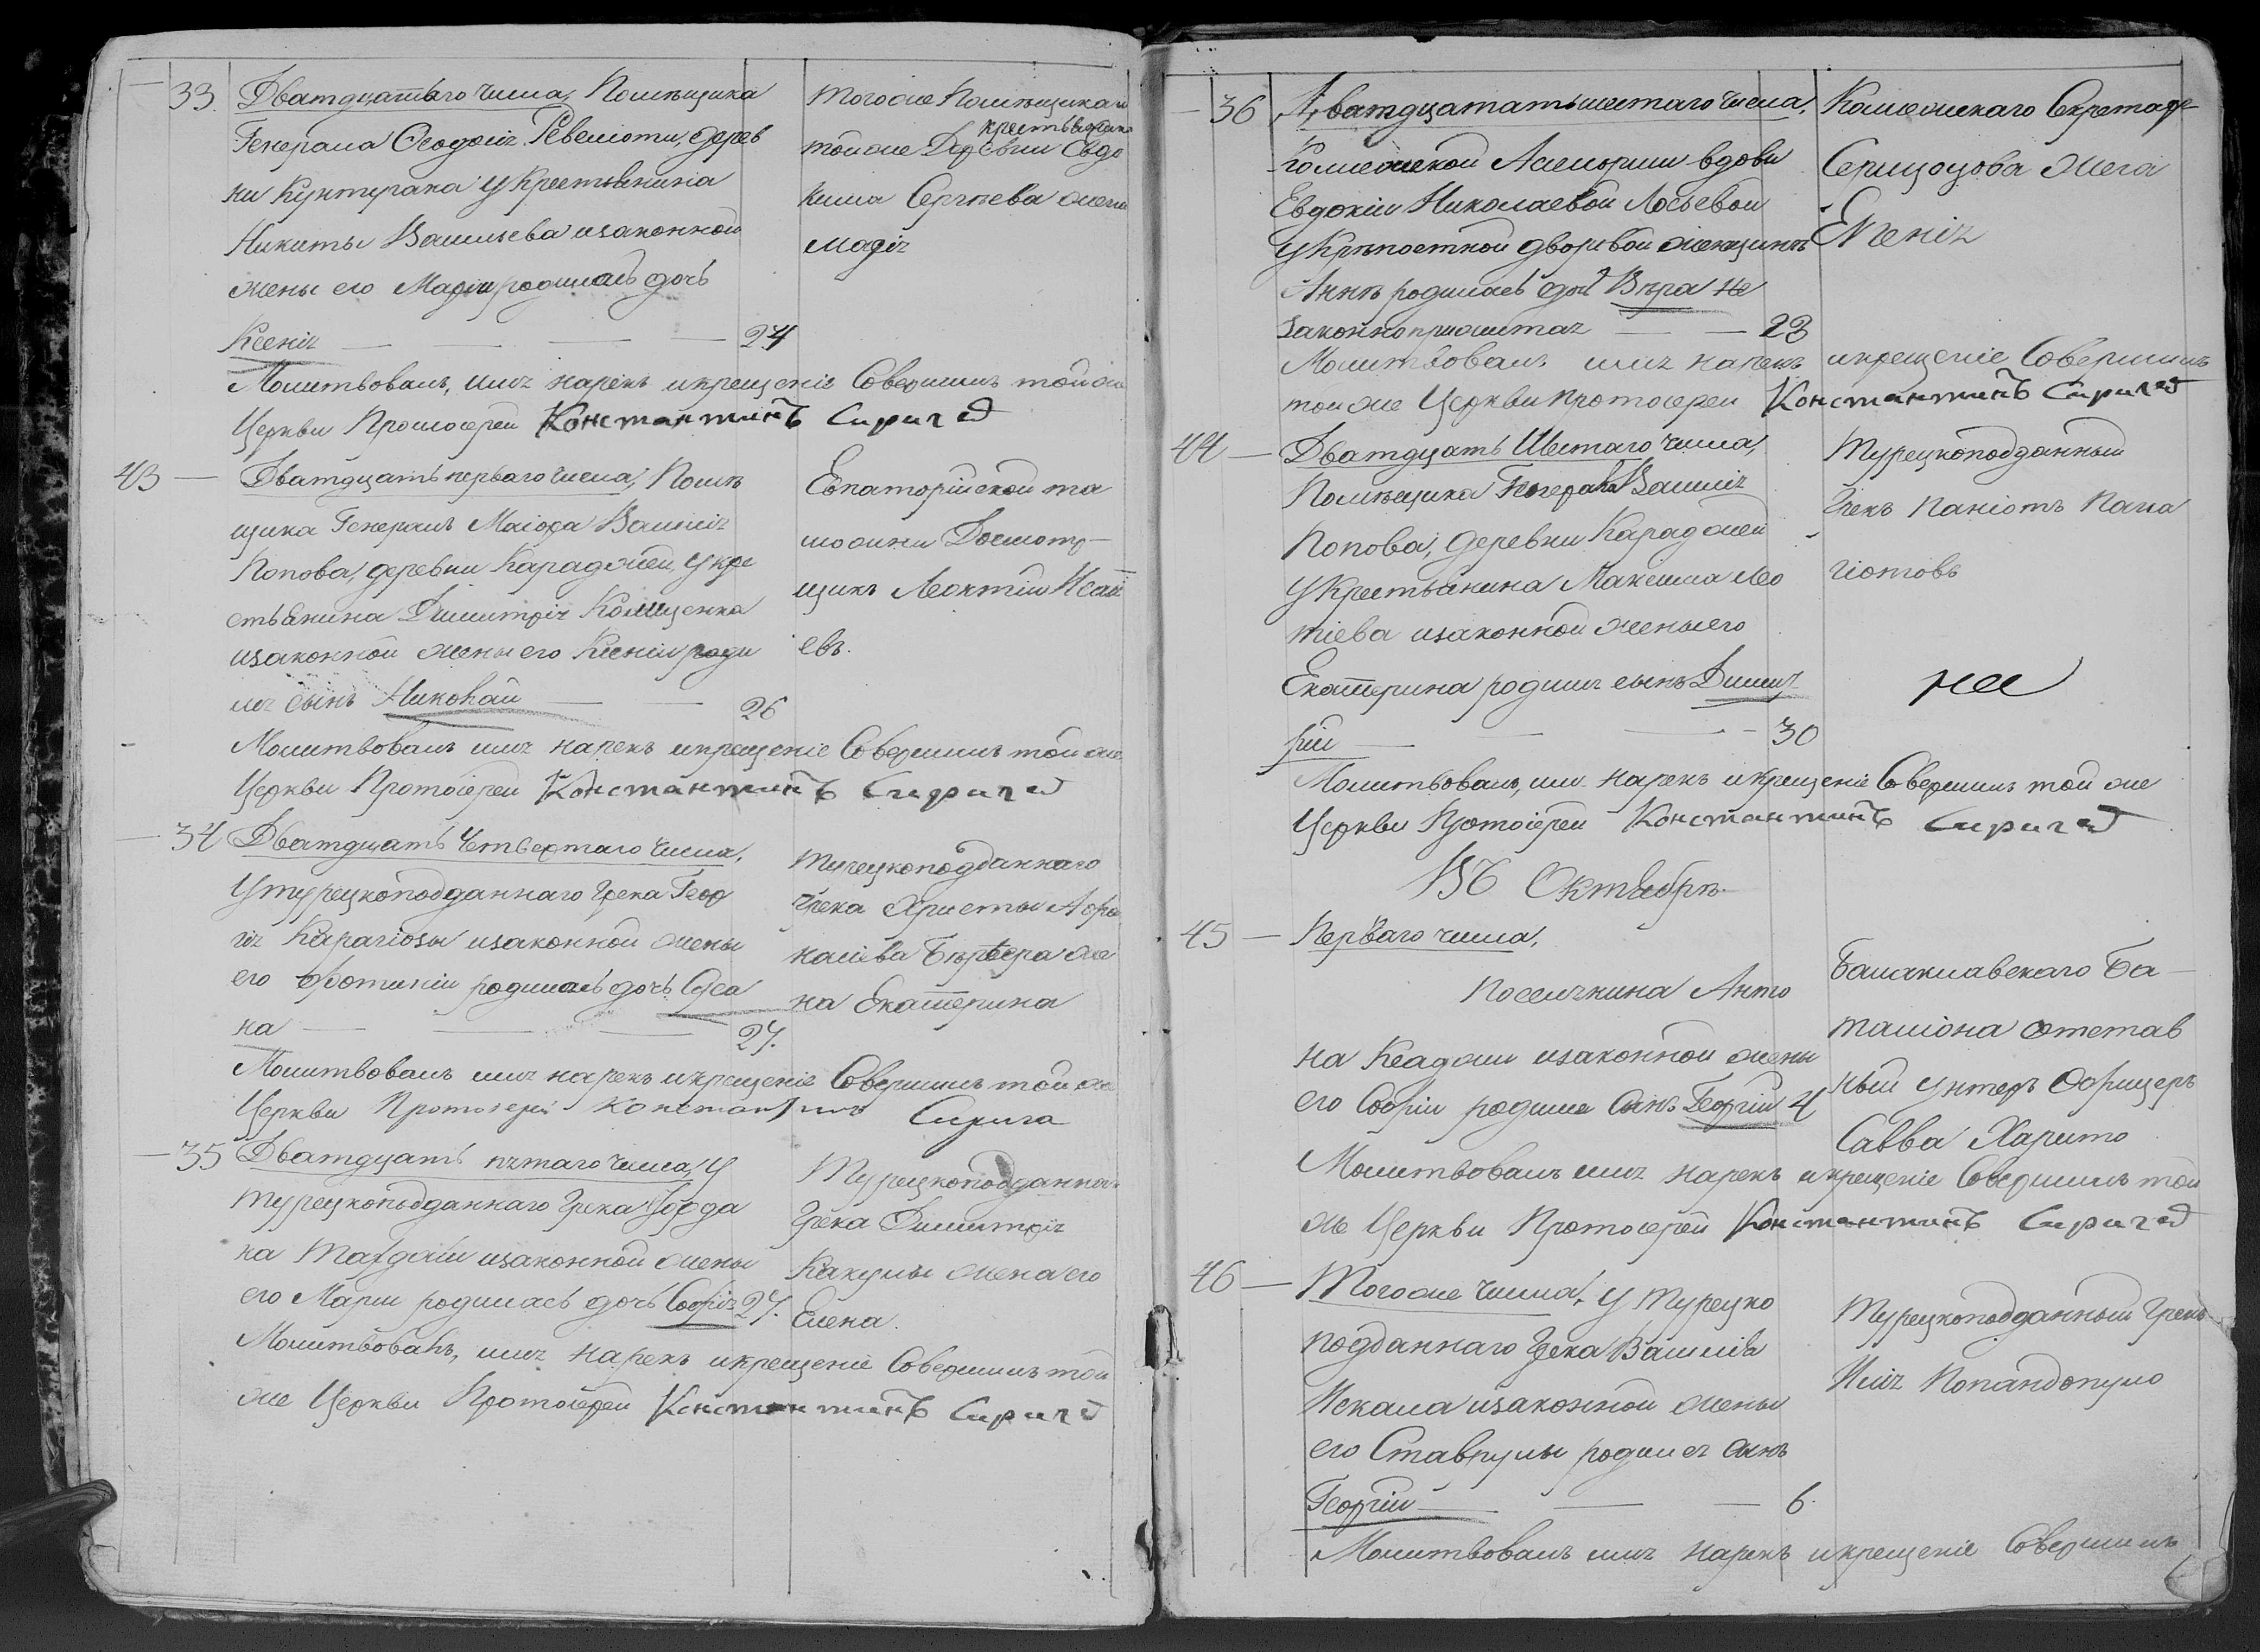 33. Дватдцатаго числа, Помѣщика
Генерала Ѳеодосія Ревелioти, дерев
ни Кунтугана у Крестьянина
Никиты Васильева изаконной
жены его Маріи родилась дочь
Ксенія 24
тогоже Помѣщика и
крестьянина
тойже Деревни Евдо
кима Сергѣева жена
Марія
Молитвовалъ, имя нарекъ икрещеніе Совершилъ той же
Церкви Протоіерей Константинъ Сирига
43 Дватдцать перваго числа, Помѣ
щика Генералъ Маіора Василія
Попова, деревни Караджей, у кре
стьянина Димитрія
изаконной жены его Ксеніи роди
лся сынъ Николай 26
Евпаторійской та
можни Досмотр
щикъ Леонтій Исаи
евъ.
Молитвовалъ имя нарекъ икрещеніе Совершилъ той же
Церкви Протоіерей Константинъ Сирига
34 Дватдцать Четвертаго числа,
У турецкоподданнаго Грека Геор
гія Карагіозы изаконной жены
его Фотиніи родилась дочь Суса
на 27.
турецкоподданнаго
Грека Христы Афа
насіева же
на Екатерина
Молитвовалъ имя нарекъ икрещеніе Совершилъ той же
Церкви Протоіерей Константинъ Сирига
35 Дватдцать пятаго числа, У
турецкоподданнаго Грека Іорда
на изаконной жены
его Маріи родилась дочь Софія 27.
Турецкоподданна
Грека Димитрія
Какулы жена его
Елена.
Молитвовалъ, имя нарекъ икрещеніе Совершилъ той
же Церкви Протоіерей Константинъ Сирига
36 Дватдцатать шестаго числа,
Колежской Асесорши вдовы
Евдокіи Николаевой Лосьевой
у Крѣпостной дворовой женщины
Анны родилась дочь Вѣра не
законноприжитая 23
Колежскаго Секретар
жена
Евгенія
Молитвовалъ имя нарекъ икрещеніе Совершилъ
той же Церкви Протоіерей Константинъ Сирига
44 Дватдцать Шестаго числа,
Помѣщика Генерала Василія
Попова, деревни Караджей
у Крестьянина Максима Лео
тіева изаконной жены его
Екатерина родился сынъ Димит
рій 30
Турецкоподданный
Грекъ Паніотъ Пана
гіотовъ
Молитвовалъ, имя нарекъ икрещеніе Совершилъ той же
Церкви Протоіерей Константинъ Сирига
Въ Октябрѣ
45 Перваго числа,
Поселянина Анто
на изаконной жены
его Софіи родился Сынъ Георгій 4
Балаклавскаго Ба
таліона отстав
ный Унтеръ Офицеръ
Савва Харито
Молитвовалъ имя нарекъ икрещеніе Совершилъ той
же Церкви Протоіерей Константинъ Сирига
46 Тогоже числа, у Турецко
подданнаго Грека Василія
Искала изаконной жены
его Ставрулы родился Сынъ
Георгій 6.
Турецкоподданный Грекъ
Илія Попандопуло
Молитвовалъ имя нарекъ икрещеніе Совершилъ